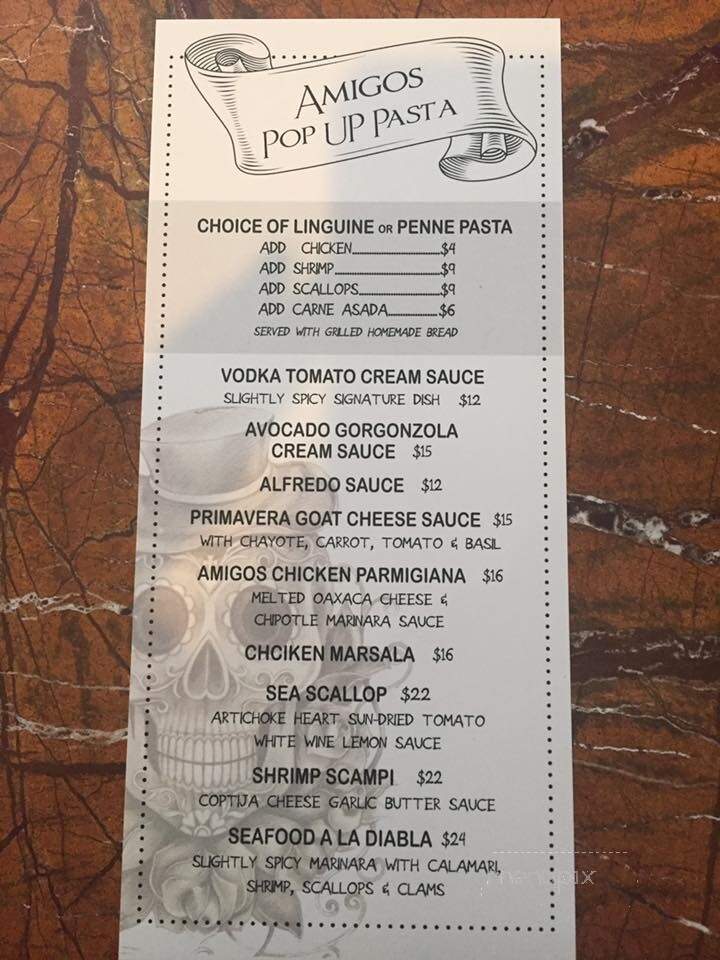 AMIGOS
POP UP PASTA
CHOICE OF LINGUINE OR PENNE PASTA
ADD CHICKEN $4
ADD SHRIMP $9
ADD SCALLOPS $9
ADD CARNE ASADA $6
SERVED WITH GRILLED HOMEMADE BREAD
VODKA TOMATO CREAM SAUCE
SLIGHTLY SPICY SIGNATURE DISH $12
AVOCADO GORGONZOLA
CREAM SAUCE $15
ALFREDO SAUCE $12
PRIMAVERA GOAT CHEESE SAUCE $15
WITH CHAYOTE, CARROT, TOMATO & BASIL
AMIGOS CHICKEN PARMIGIANA $16
MELTED OAXACA CHEESE &
CHIPOTLE MARINARA SAUCE
CHCIKEN MARSALA $16
SEA SCALLOP $22
ARTICHOKE HEART SUN-DRIED TOMATO
WHITE WINE LEMON SAUCE
SHRIMP SCAMPI $22
COPTIJA CHEESE GARLIC BUTTER SAUCE
SEAFOOD A LA DIABLA $24
SLIGHTLY SPICY MARINARA WITH CALAMARI,
SHRIMP, SCALLOPS & CLAMS
menupix